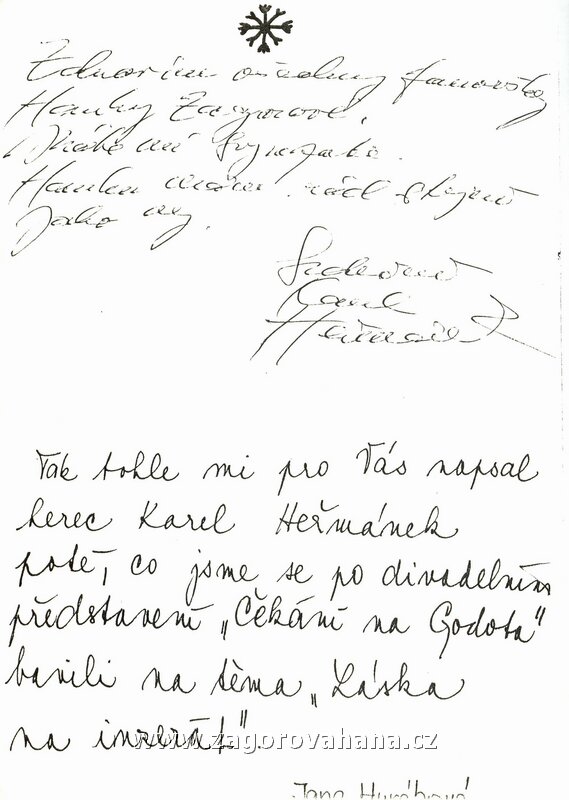 Zdravím všechny fanoušky
Hanky Zagorové.
Hanku mám rád stejně
jako vy.
Srdečně
Karel
Heřmánek
Tak tohle mi pro Vás napsal
herec Karel Heřmánek
poté, co jsme se po divadelním
představení „Čekání na Godota"
bavili na téma „Láska
na inzerát".
www.zagorovahana.cz
Jana